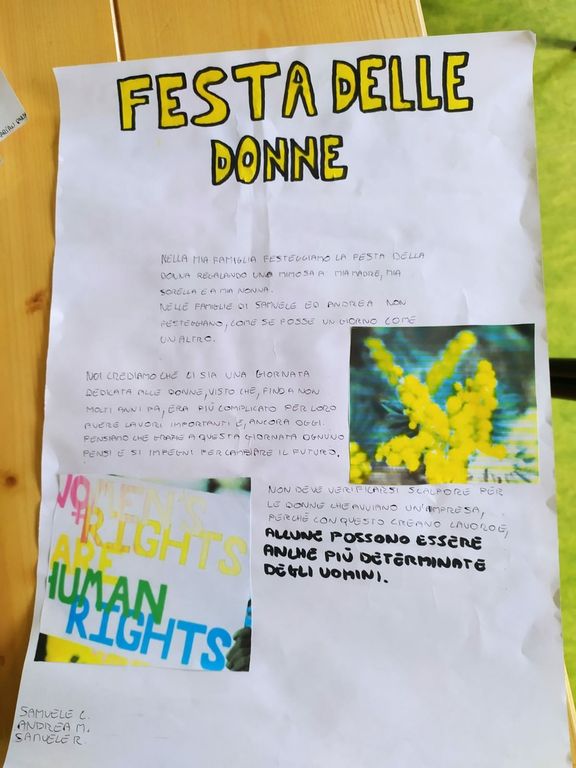 FESTA DELLE
DONNE
NELLA MIA FAMIGLIA FESTEGGIAMO LA FESTA DELLA
DONNA REGALANDO UNA MIMOSA A MIA MADRE, MIA
SORELLA E A MIA NONNA.
NELLE FAMIGLIE DI SAMUELE ED ANDREA NON
FESTEGGIANO, COME SE FOSSE UN GIORNO COME
UN ALTRO.
NOI CREDIAMO CHE CI SIA UNA GIORNATA
DEDICATA ALLE DONNE, VISTO CHE, FIN DA NON
MOLTI ANNI FA, ERA PIÙ COMPLICATO PER LORO
AVERE LAVORI IMPORTANTI E, ANCORA OGGI.
PENSIAMO CHE GRAZIE A QUESTA GIORNATA OGNUNO
PENSI E SI IMPEGNI PER CAMBIARE IL FUTURO.
NON DEVE VERIFICARSI SCALPORE PER
LE DONNE CHE AVVIANO UN'IMPRESA,
PERCHÈ CON QUESTO CREANO LAVORO E,
ALCUNE POSSONO ESSERE
ANCHE PIÙ DETERMINATE
DEGLI UOMINI.
WOMEN'S
RIGHTS
ARE
HUMAN
RIGHTS
SAMUELE C.
ANDREA M.
SAMUELE R.